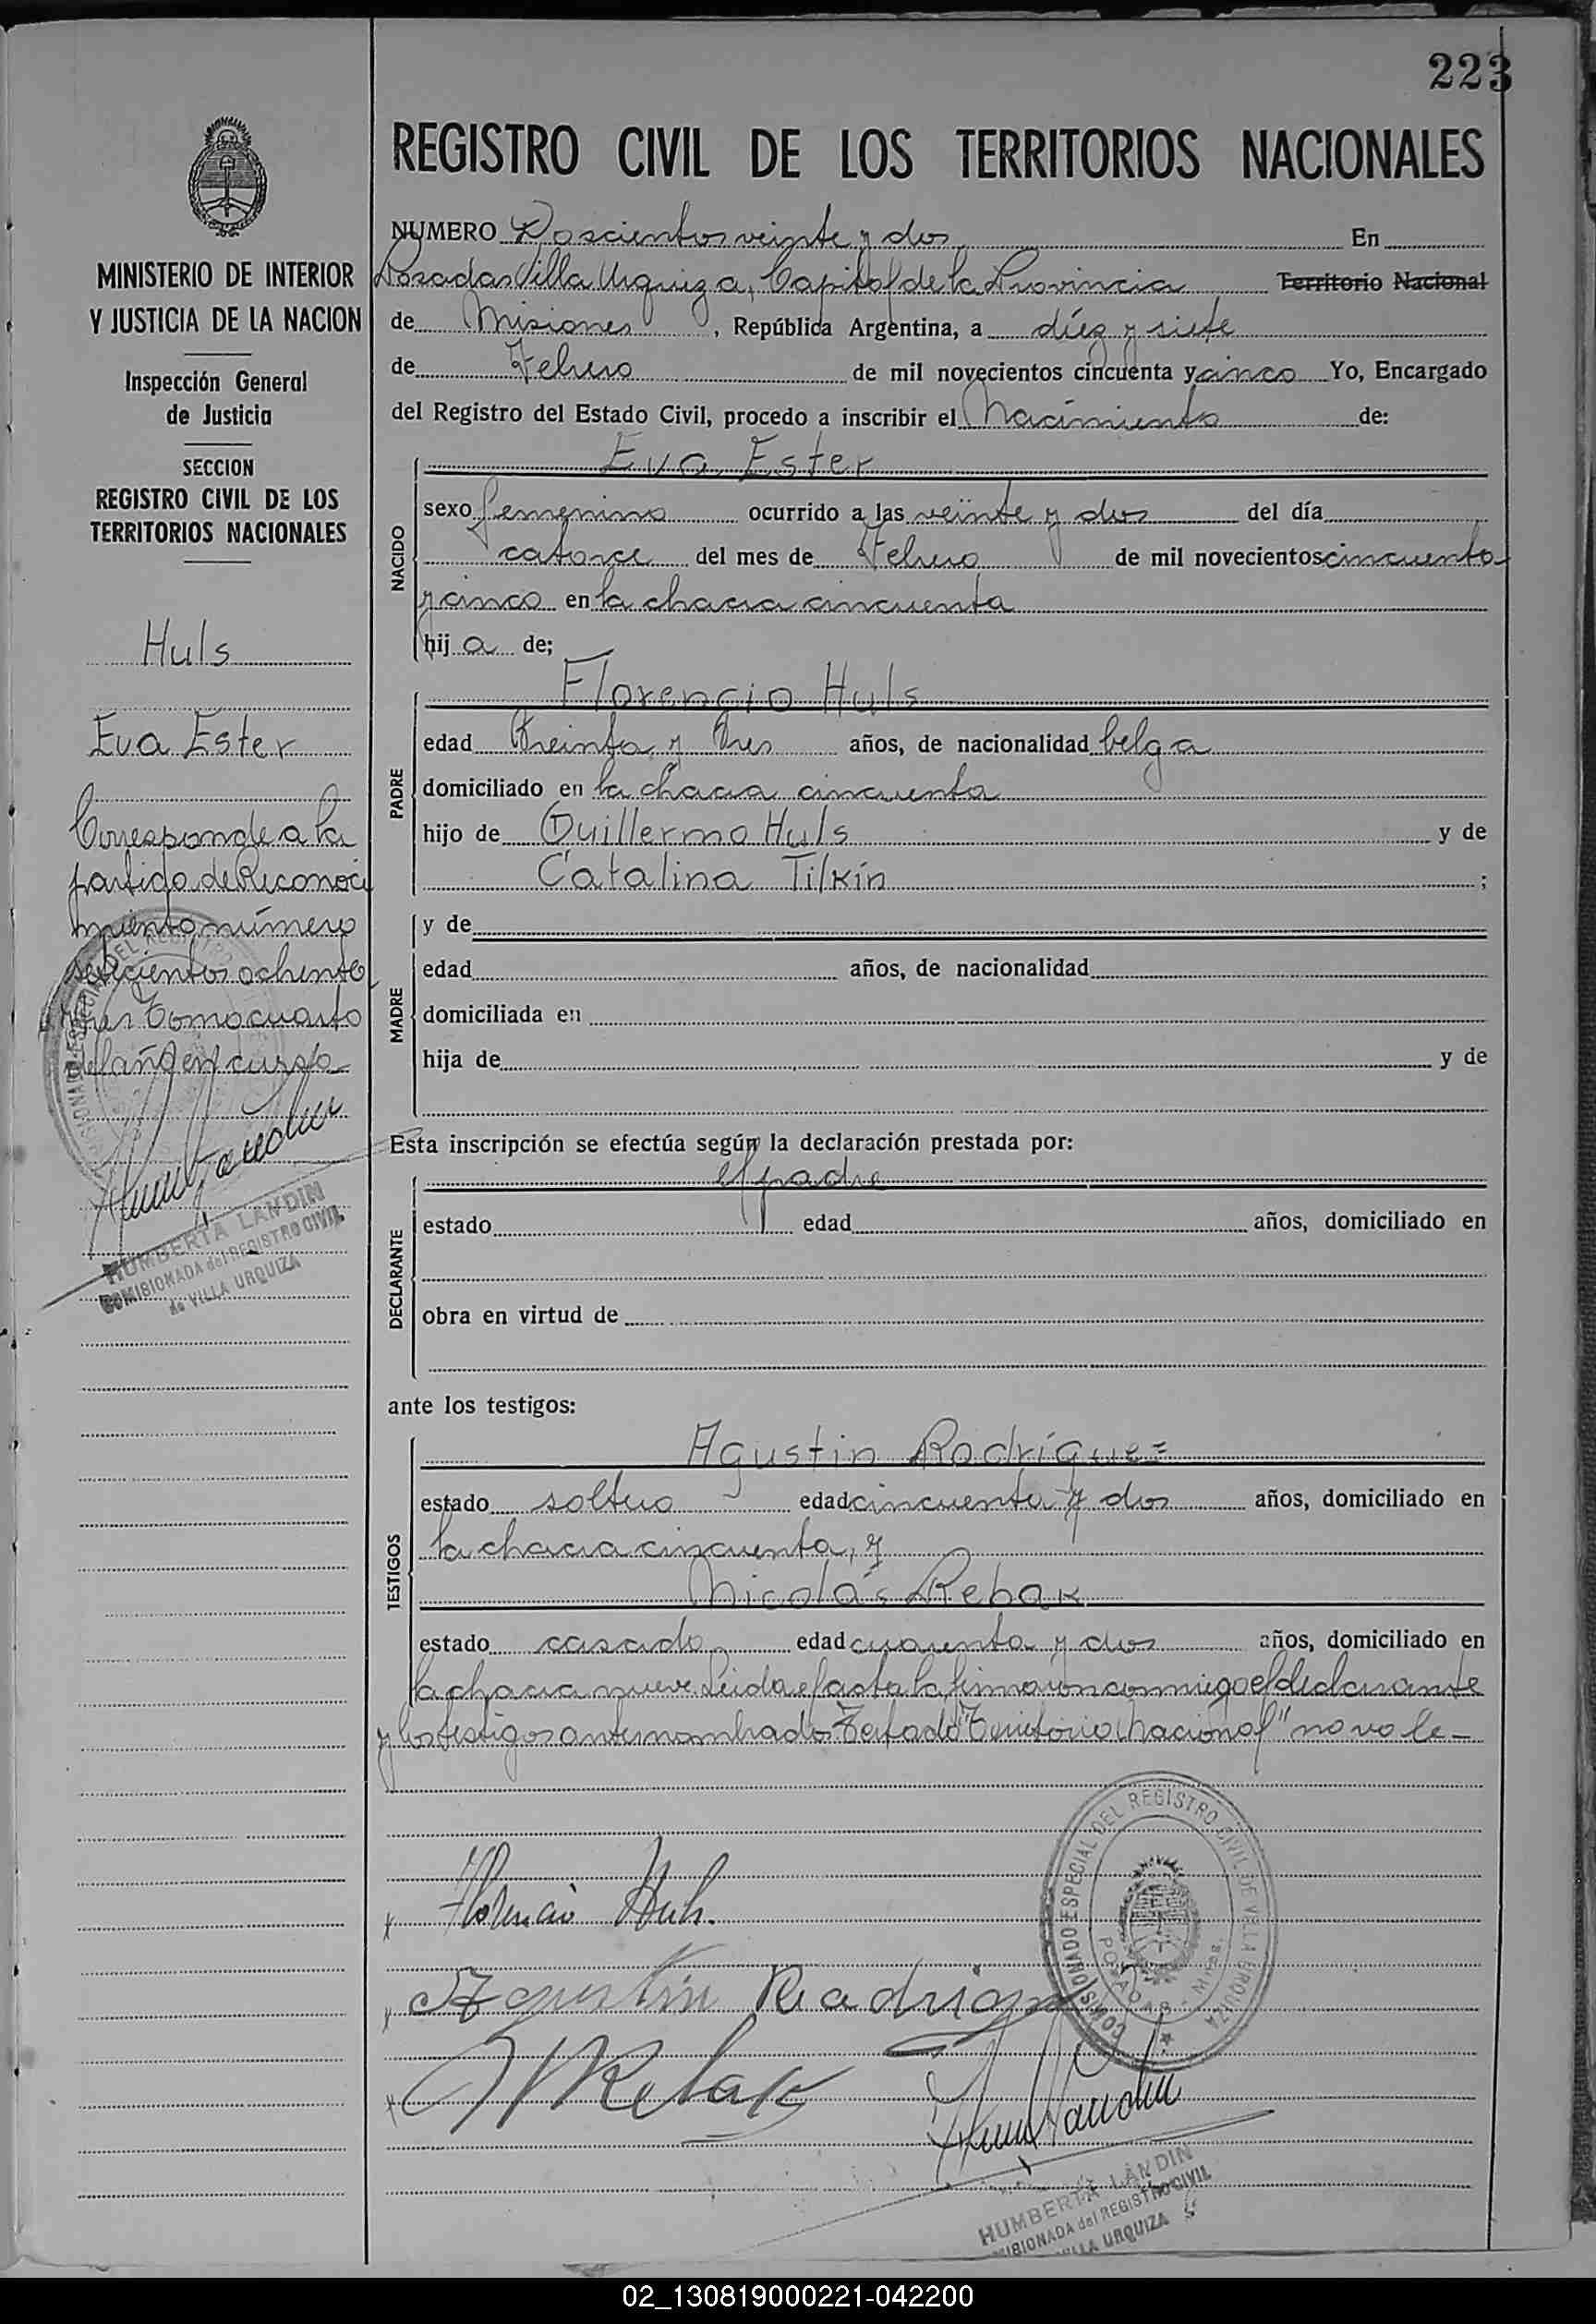 223
REGISTRO CIVIL DE LOS TERRITORIOS NACIONALES
MINISTERIO DE INTERIOR
Y JUSTICIA DE LA NACION
Inspección General
de Justicia
SECCION
REGISTRO CIVIL DE LOS
TERRITORIOS NACIONALES
Huls
Eva Ester
Corresponde a la
partida de Reconoci
miento número
ochenta
tres Tomo cuarto
del año en curso
HUMBERTA LANDIN
COMISIONADA del REGISTRO CIVIL
de VILLA URQUIZA
NUMERO Doscientos veinte y dos En
Posadas Villa Urquiza, Capital de la Provincia Territorio Nacional
de Misiones, República Argentina, a diez y siete
de Febrero de mil novecientos cincuenta y cinco Yo, Encargado
del Registro del Estado Civil, procedo a inscribir el Nacimiento de:
NACIDO
Eva Ester
sexo femenino ocurrido a las veinte y dos del día
catorce del mes de Febrero de mil novecientos cincuenta
y cinco en la chacra cincuenta
hij a de;
PADRE
Florencio Huls
edad treinta y tres años, de nacionalidad belga
domiciliado en la chacra cincuenta
hijo de Guillermo Huls y de
Catalina Tilkín ;
MADRE
y de
edad años, de nacionalidad
domiciliada en
hija de y de
Esta inscripción se efectúa según la declaración prestada por:
DECLARANTE
el padre
estado edad años, domiciliado en
obra en virtud de
ante los testigos:
TESTIGOS
Agustin Rodríguez
estado soltero edad cincuenta y dos años, domiciliado en
la chacra cincuenta, y
Nicolás Rebak
estado casado edad cuarenta y dos años, domiciliado en
la chacra nueve. Leida el acta la firmaron conmigo el declarante
y los testigos antes nombrados. Testado "Territorio Nacional" no vale-
Florencio Huls.
Agustin Rodrigue
NRebak
COMISIONADO ESPECIAL DEL REGISTRO CIVIL DE VILLA URQUIZA
POSADAS - Mnes.
HUMBERTA LANDIN
COMISIONADA del REGISTRO CIVIL
VILLA URQUIZA
02_130819000221-042200